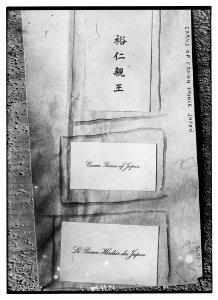 裕仁親王
CARDS OF CROWN PRINCE JAPAN
Crown Prince of Japan
Le Prince Héritier du Japon